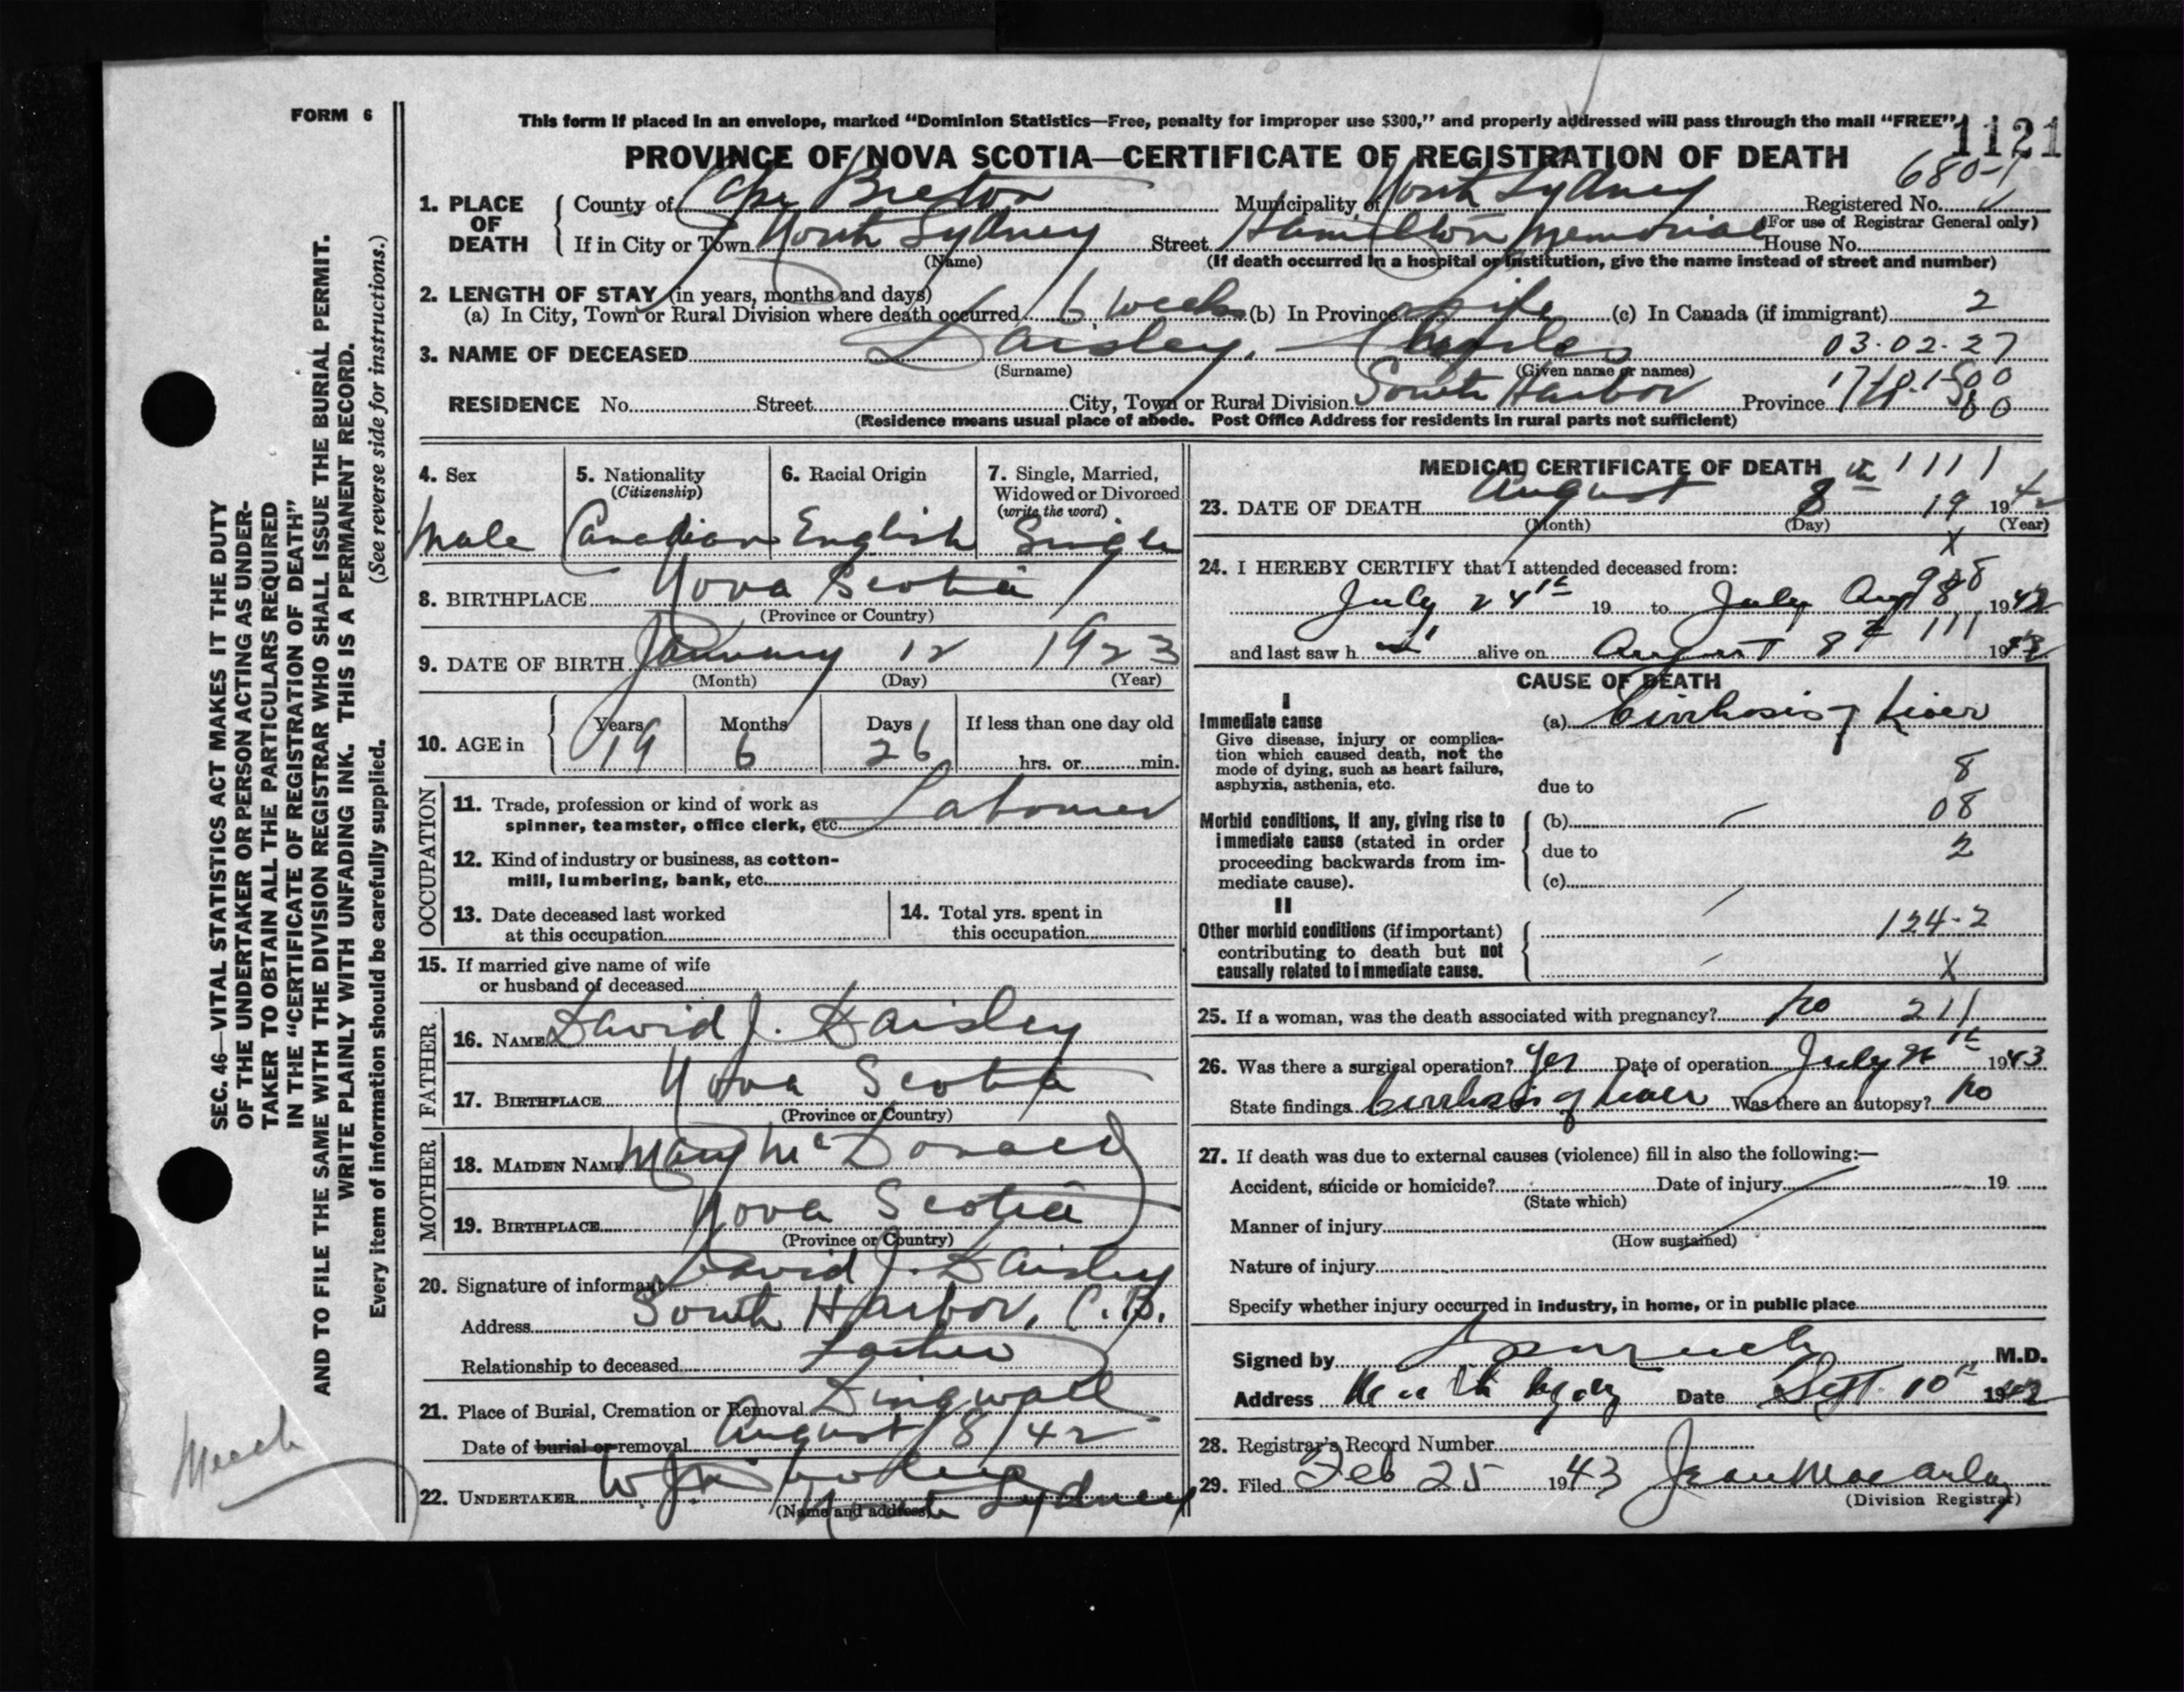 FORM 6
This form if placed in an envelope, marked "Dominion Statistics—Free, penalty for improper use $300," and properly addressed will pass through the mail "FREE"
1121
PROVINCE OF NOVA SCOTIA—CERTIFICATE OF REGISTRATION OF DEATH
680-1
1. PLACE OF DEATH { County of Cape Breton Municipality of North Sydney Registered No.
(For use of Registrar General only)
If in City or Town North Sydney Street Hamilton Memorial House No.
(Name) (If death occurred in a hospital or institution, give the name instead of street and number)
2. LENGTH OF STAY (in years, months and days)
(a) In City, Town or Rural Division where death occurred 6 weeks (b) In Province Life (c) In Canada (if immigrant) 2
3. NAME OF DECEASED Daisley, Charles 03-02-27
(Surname) (Given name or names)
RESIDENCE No. Street City, Town or Rural Division South Harbor Province
(Residence means usual place of abode. Post Office Address for residents in rural parts not sufficient)
4. Sex Male
5. Nationality (Citizenship) Canadian
6. Racial Origin English
7. Single, Married, Widowed or Divorced (write the word) Single
8. BIRTHPLACE Nova Scotia
(Province or Country)
9. DATE OF BIRTH January 12 1923
(Month) (Day) (Year)
10. AGE in { Years 19 Months 6 Days 26 If less than one day old
hrs. or min.
OCCUPATION
11. Trade, profession or kind of work as
spinner, teamster, office clerk, etc. Labourer
12. Kind of industry or business, as cotton-
mill, lumbering, bank, etc.
13. Date deceased last worked
at this occupation
14. Total yrs. spent in
this occupation
15. If married give name of wife
or husband of deceased
FATHER
16. NAME David J. Daisley
17. BIRTHPLACE Nova Scotia
(Province or Country)
MOTHER
18. MAIDEN NAME Mary McDonald
19. BIRTHPLACE Nova Scotia
(Province or Country)
20. Signature of informant David J. Daisley
Address South Harbor, C.B.
Relationship to deceased Father
21. Place of Burial, Cremation or Removal Dingwall
Date of burial or removal August 8/42
22. UNDERTAKER W.J. North Sydney
(Name and address)
MEDICAL CERTIFICATE OF DEATH 1111
23. DATE OF DEATH August 8th 19 1942
(Month) (Day) (Year)
X
24. I HEREBY CERTIFY that I attended deceased from:
July 24th 19 to July Aug 8 1942
and last saw h alive on August 8th 111 1942
CAUSE OF DEATH
I
Immediate cause
Give disease, injury or complica-
tion which caused death, not the
mode of dying, such as heart failure,
asphyxia, asthenia, etc.
(a) Cirrhosis of Liver
8
due to
Morbid conditions, if any, giving rise to
immediate cause (stated in order
proceeding backwards from im-
mediate cause).
(b) 08
due to 2
(c)
II
Other morbid conditions (if important)
contributing to death but not
causally related to immediate cause.
124-2
X
25. If a woman, was the death associated with pregnancy? no 211
26. Was there a surgical operation? Yes Date of operation July 1943
State findings Cirrhosis of liver Was there an autopsy? No
27. If death was due to external causes (violence) fill in also the following:—
Accident, suicide or homicide? Date of injury 19
(State which)
Manner of injury
(How sustained)
Nature of injury
Specify whether injury occurred in industry, in home, or in public place
Signed by M.D.
Address North Sydney Date Sept. 10th 1942
28. Registrar's Record Number
29. Filed Feb 25 1943 Jean
(Division Registrar)
SEC. 46—VITAL STATISTICS ACT MAKES IT THE DUTY
OF THE UNDERTAKER OR PERSON ACTING AS UNDER-
TAKER TO OBTAIN ALL THE PARTICULARS REQUIRED
IN THE "CERTIFICATE OF REGISTRATION OF DEATH"
AND TO FILE THE SAME WITH THE DIVISION REGISTRAR WHO SHALL ISSUE THE BURIAL PERMIT.
WRITE PLAINLY WITH UNFADING INK. THIS IS A PERMANENT RECORD.
Every item of information should be carefully supplied. (See reverse side for instructions.)